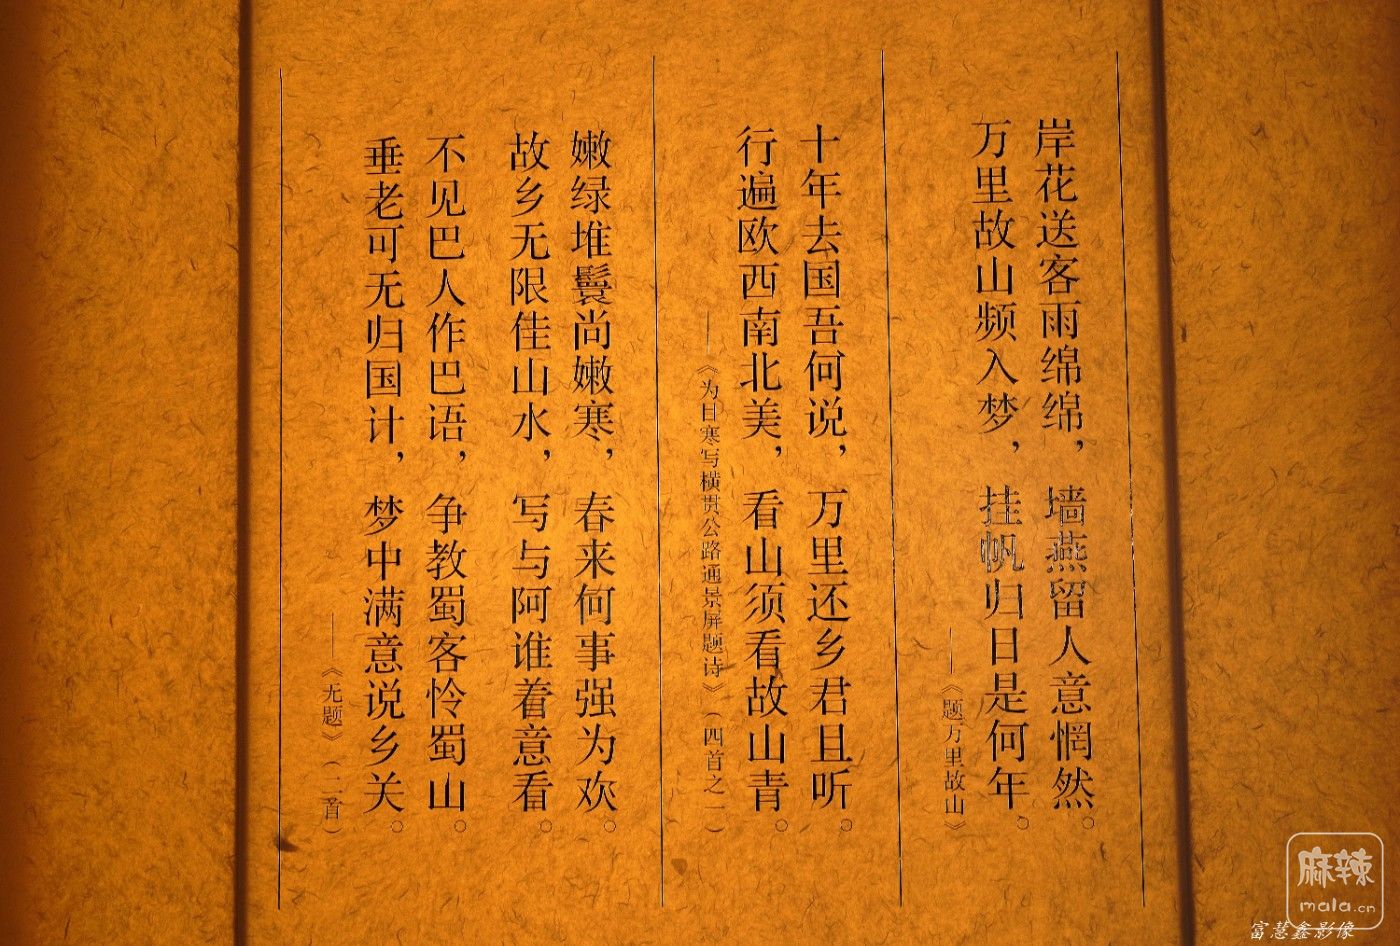 岸花送客雨绵绵，墙燕留人意惘然。
万里故山频入梦，挂帆归日是何年。
——《题万里故山》
十年去国吾何说，万里还乡君且听。
行遍欧西南北美，看山须看故山青。
——《为目寒写横贯公路通景屏题诗》（四首之一）
嫩绿堆鬟尚嫩寒，春来何事强为欢。
故乡无限佳山水，写与阿谁着意看。
不见巴人作巴语，争教蜀客怜蜀山。
垂老可无归国计，梦中满意说乡关。
——《无题》（二首）
麻辣
mala.cn
富慧鑫影像